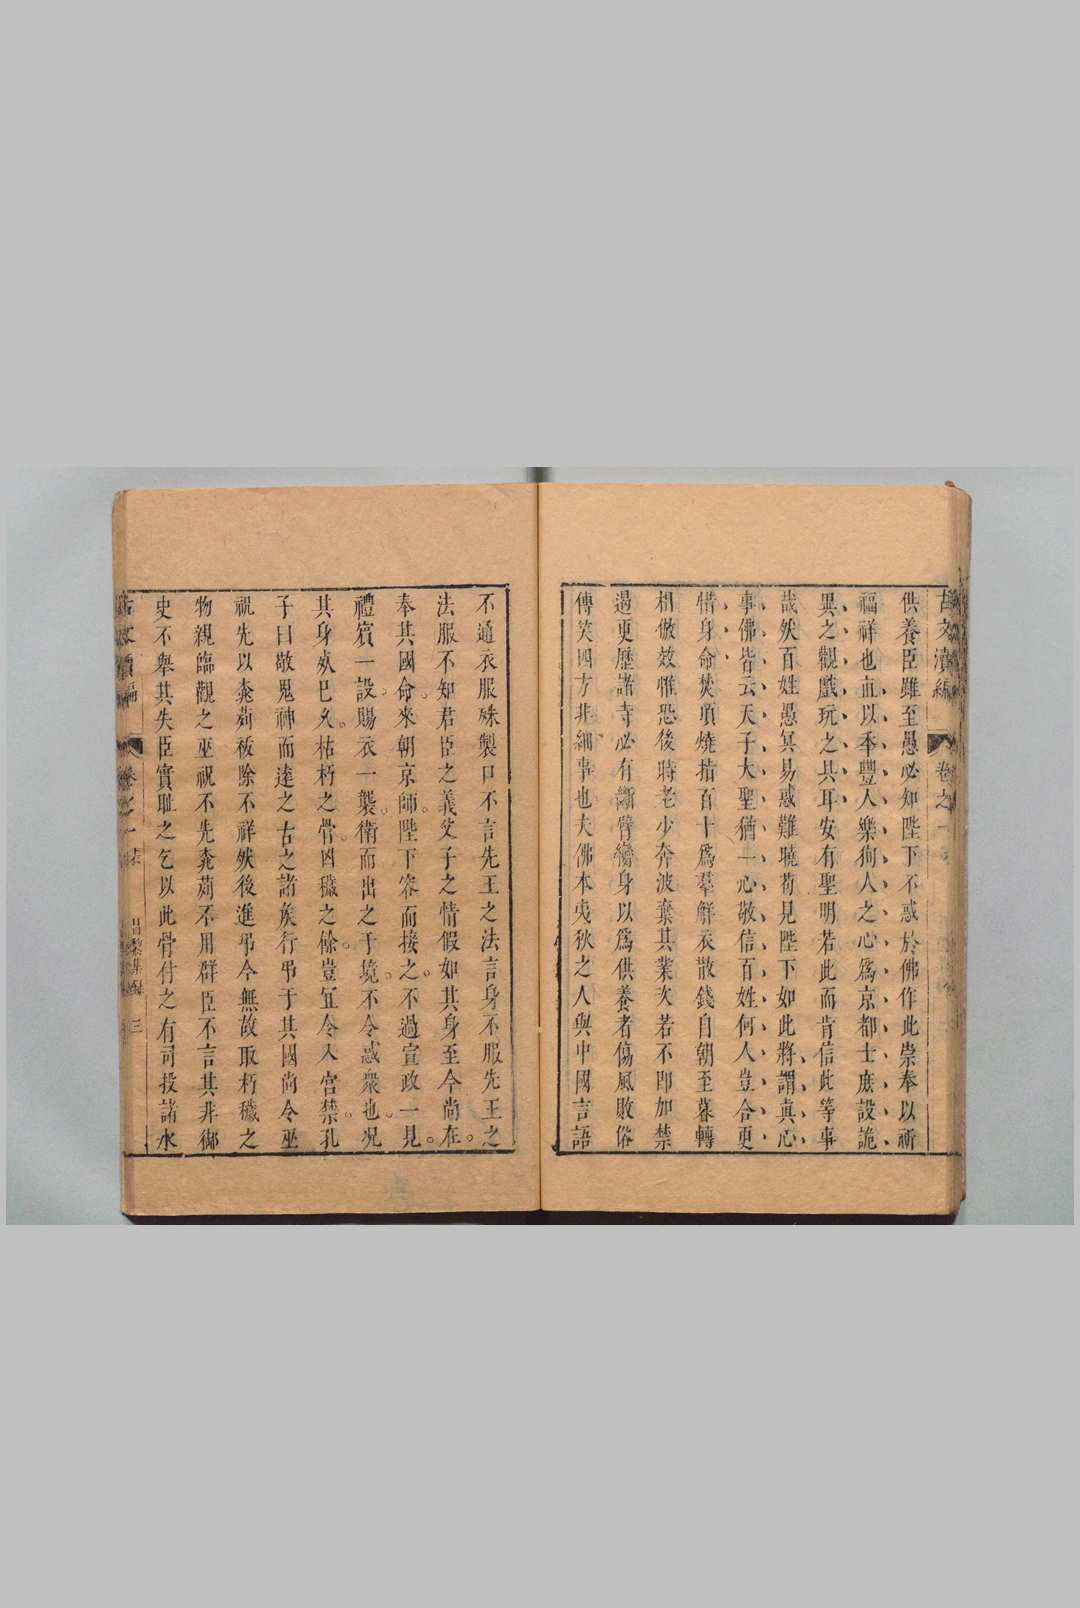 古文瀆編
卷之一
供養臣雖至愚必知陛下不惑於佛作此崇奉以祈
福祥也直以奉豐人樂徇人之心爲京都士庶設詭
異之觀戲玩之具耳安有聖明若此而肯信此等事
哉然百姓愚冥易惑難曉茍見陛下如此將謂真心
事佛皆云天子大聖猶一心敬信百姓何人豈合更
惜身命焚頂燒指百十爲羣觧衣散錢自朝至暮轉
相倣效惟恐後時老少奔波棄其業次若不即加禁
遏更歷諸寺必有斷臂臠身以爲供養者傷風敗俗
傳笑四方非細事也夫佛本夷狄之人與中國言語
不通衣服殊製口不言先王之法言身不服先王之
法服不知君臣之義父子之情假如其身至今尚在
奉其國命來朝京師陛下容而接之不過宣政一見
禮賓一設賜衣一襲衛而出之于境不令惑衆也况
其身殁已久枯朽之骨凶穢之餘豈宜令入宮禁孔
子曰敬鬼神而遠之古之諸矦行弔于其國尚令巫
祝先以桃茢祓除不祥然後進弔今無故取朽穢之
物親臨觀之巫祝不先桃茢不用群臣不言其非御
史不舉其失臣實耻之乞以此骨付之有司投諸水
古文瀆編
卷之一
昌黎集
三